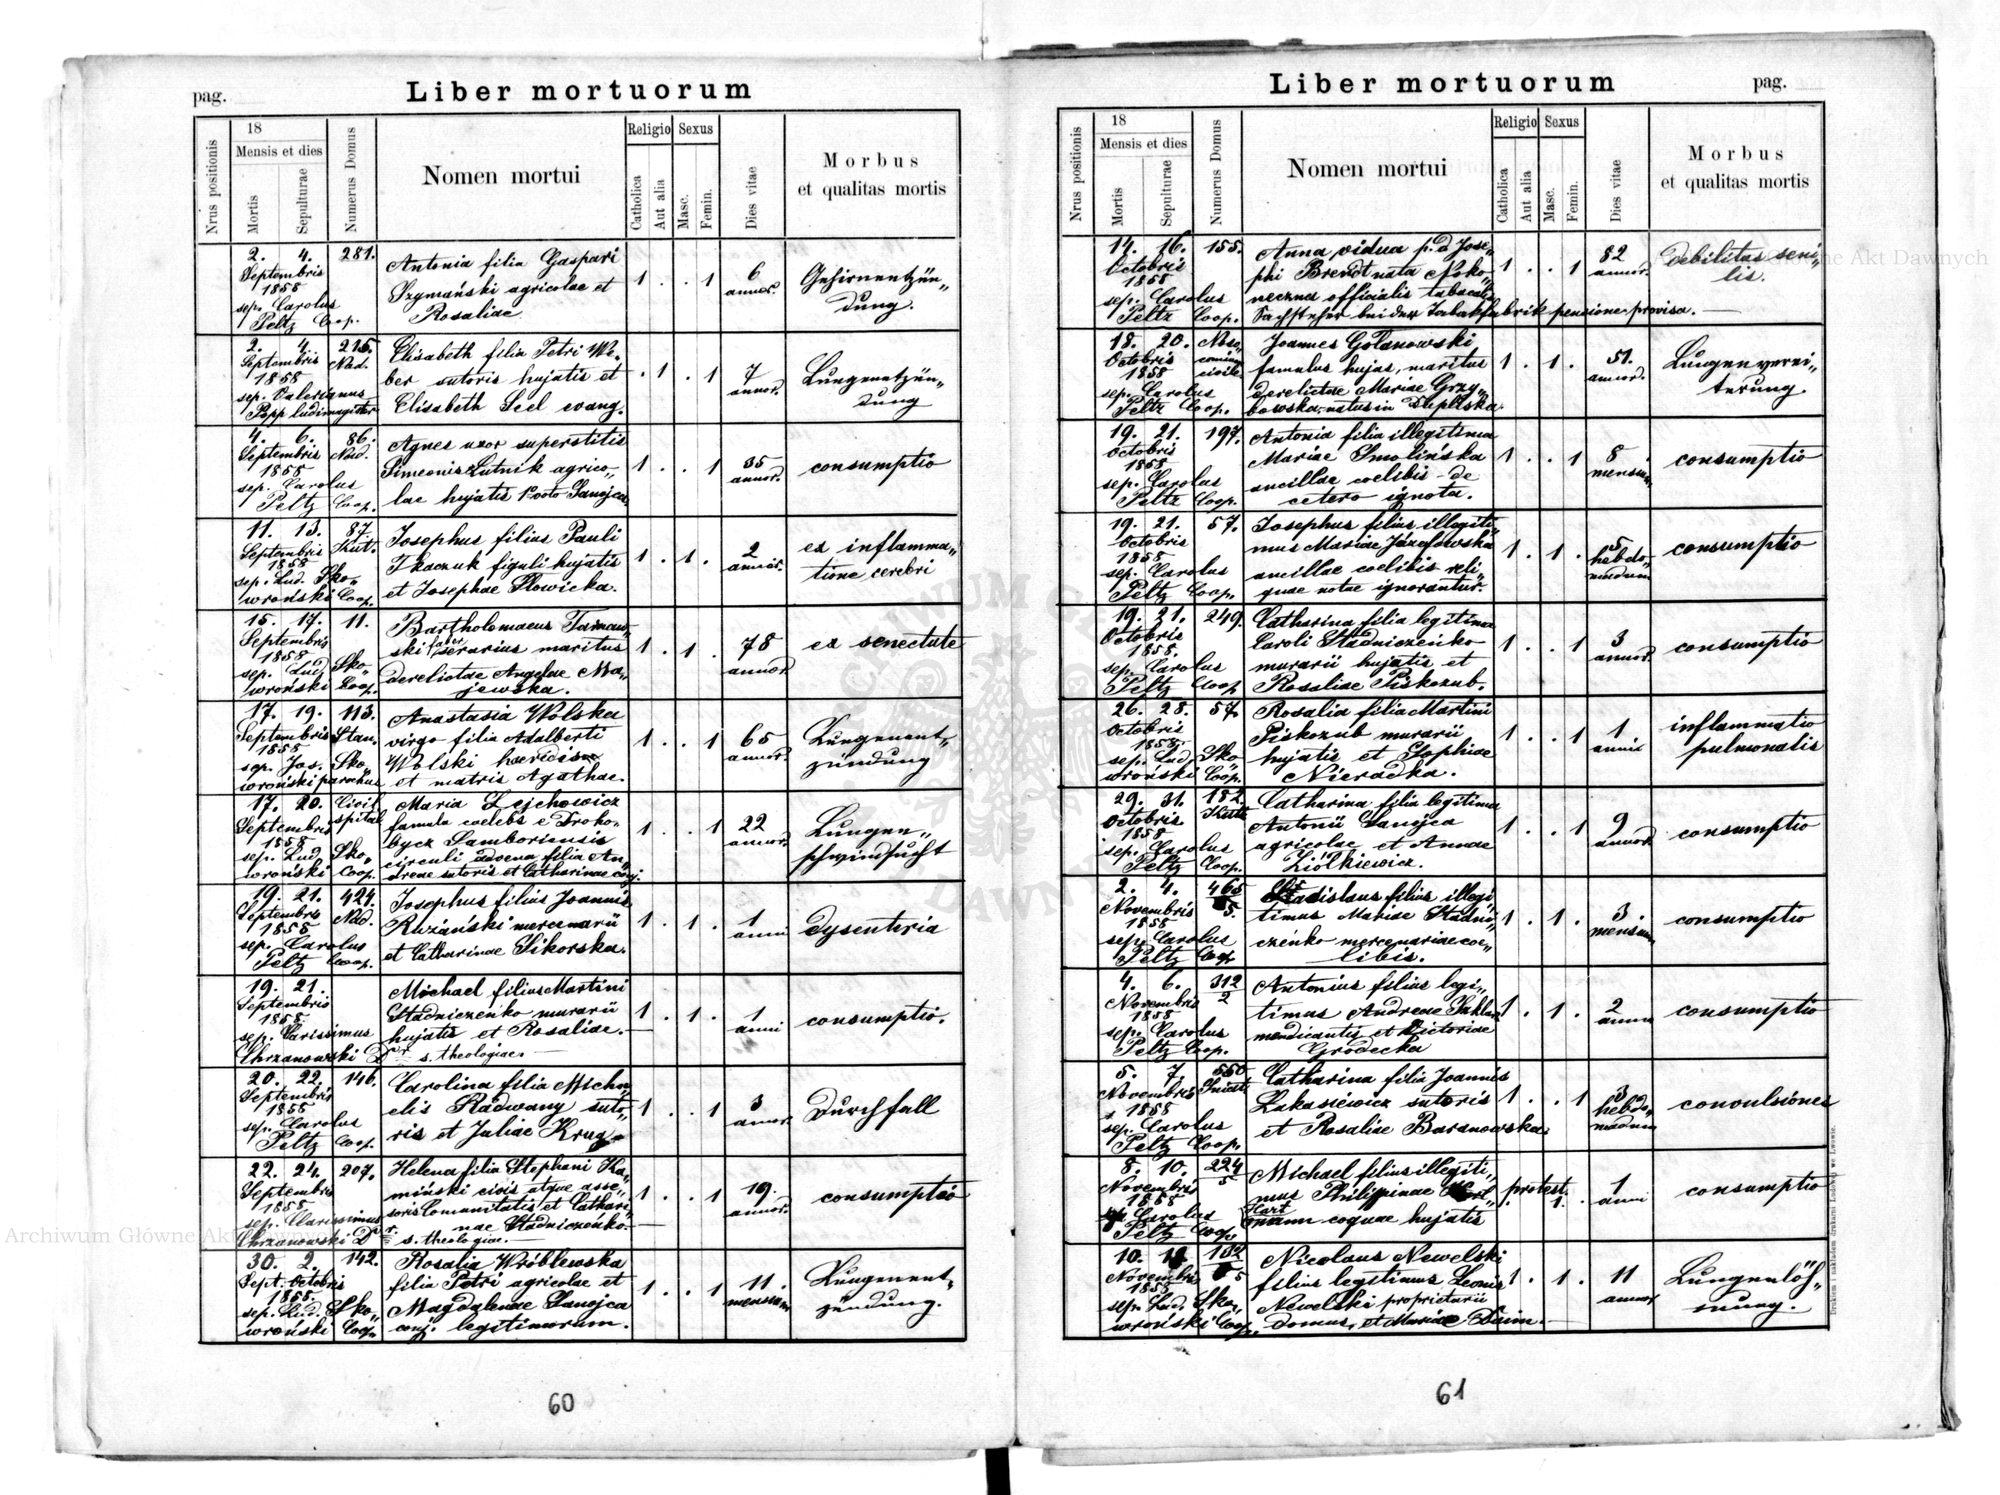 pag.
Liber mortuorum
Nrus positionis
18
Mensis et dies
Mortis
Sepulturae
Numerus Domus
Nomen mortui
Religio
Catholica
Aut alia
Sexus
Masc.
Femin.
Dies vitae
Morbus
et qualitas mortis
2. 4. 281.
Septembris
1858
sep. Carolus
Peltz Coop.
Antonia filia Gaspari
Szymański agricolae et
Rosaliae
1 . . 1
6
annor.
Gehirnentzün„
dung.
2. 4. 215.
Septembris Nad.
1858
sep. Valerianus
Popp ludimagister
Elisabeth filia Petri We„
ber sutoris hujatis et
Elisabeth Seel evang.
. 1 . 1
7
annor.
Lungenentzün„
dung
4. 6. 86.
Septembris Nad.
1858
sep. Carolus
Peltz Coop.
Agnes uxor superstitis
Simeonis Lutnik agrico„
lae hujatis 1º voto Sanojca
1 . . 1
35
annor.
consumptio
11. 13. 87.
Septembris Kut.
1858
sep. Lud. Sko„
wroński Coop.
Josephus filius Pauli
Tkaczuk figuli hujatis
et Josephae Słowicka.
1 . 1 .
2
annor.
ex inflamma„
tione cerebri
15. 17. 11.
Septembris
1858
sep. Lud. Sko„
wroński Coop.
Bartholomaeus Tarnaw„
ski faber serarius maritus
derelictae Angelae Ma„
jewska.
1 . 1 .
78
annor.
ex senectute
17. 19. 113.
Septembris Stan.
1858
sep. Jos. Sko„
wroński parochus
Anastasia Wolska
virgo filia Adalberti
Wolski haeredis
et matris Agathae.
1 . . 1
65
annor.
Lungenent„
zündung
17. 20. Civil
Septembris spital
1858
sep. Lud. Sko„
wroński Coop.
Maria Lejchowicz
famula coelebs e Droho„
bycz Samboriensis
circuli advena filia An„
dreae sutoris et Catharinae conj.
1 . . 1
22
annor.
Lungen„
schwindsucht
19. 21. 424.
Septembris Nad.
1858
sep. Carolus
Peltz Coop.
Josephus filius Joannis
Ruzański mercenarii
et Catharinae Sikorska.
1 . 1 .
1
anni
dysenteria
19. 21.
Septembris
1858.
sep. Clarissimus
Chrzanowski Dr s. theologiae.
Michael filius Martini
Stadniczeńko murarii
hujatis et Rosaliae.
1 . 1 .
1
anni
consumptio.
20. 22. 146.
Septembris
1858
sep. Carolus
Peltz Coop.
Carolina filia Micha„
elis Radwany suto„
ris et Juliae Krug
1 . . 1
3
annor.
Durchfall
22. 24. 207.
Septembris
1858
sep. Clarissimus
Chrzanowski Dr s. theologiae.
Helena filia Stephani Ka„
miński civis atque asse„
soris Comunitatis et Cathari„
nae Stadniczeńko
1 . . 1
19.
annor.
consumptio
30. 2. 142.
Sept. Octobris
1858.
sep. Lud. Sko„
wroński Coop.
Rosalia Wróblewska
filia Petri agricolae et
Magdalenae Sanojca
conj. legitimorum.
1 . . 1
11.
mensium
Lungenent„
zündung.
60
Liber mortuorum
pag.
Nrus positionis
18
Mensis et dies
Mortis
Sepulturae
Numerus Domus
Nomen mortui
Religio
Catholica
Aut alia
Sexus
Masc.
Femin.
Dies vitae
Morbus
et qualitas mortis
14. 16. 155.
Octobris
1858
sep. Carolus
Peltz Coop.
Anna vidua p. d. Jose„
phi Brendt nata Noko„
neczna officialis
bei der Tabakfabrik pensione provisa.
1 . . 1
82
annor.
debilitas seni„
lis.
18. 20. Noso„
Octobris comium
1858 civile
sep. Carolus
Peltz Coop.
Joannes Golanowski
famulus hujas, maritus
derelictae Mariae Grzy„
bowska, natus in
1 . 1 .
51.
annor.
Lungenverei„
terung.
19. 21. 197.
Octobris
1858
sep. Carolus
Peltz Coop.
Antonia filia illegitima
Mariae Smolińska
ancillae coelibis de
cetero ignota.
1 . . 1
8
mensium
consumptio
19. 21. 57.
Octobris
1858
sep. Carolus
Peltz Coop.
Josephus filius illegiti„
mus Mariae Józefowska
ancillae coelibis reli„
quae notae ignorantur.
1 . 1 .
5
hebdo„
madum
consumptio
19. 21. 249.
Octobris
1858.
sep. Carolus
Peltz Coop
Catharina filia legitima
Caroli Stadniczeńko
murarii hujatis et
Rosaliae Piskozub.
1 . . 1
3
annor.
consumptio
26. 28. 57.
Octobris
1858.
sep. Lud. Sko„
wroński Coop.
Rosalia filia Martini
Piskozub murarii
hujatis et Sophiae
Nieradka.
1 . . 1
1
anni
inflammatio
pulmonalis
29. 31. 182.
Octobris Kutt.
1858
sep. Carolus
Peltz Coop.
Catharina filia legitima
Antonii Sanojca
agricolae et Annae
Ziółkiewicz.
1 . . 1
9
annor.
consumptio
2. 4. 465
Novembris 5.
1858
sep. Carolus
Peltz Coop
Stadislaus filius illegi„
timus Mariae Stadni„
czeńko mercenariae coe„
libis.
1 . 1 .
3.
mensium
consumptio
4. 6. 312
Novembris 2
1858
sep. Carolus
Peltz Coop.
Antonius filius legi„
timus Andreae
mendicantis et Victoriae
Grodecka
1 . 1 .
2
annor
consumptio
5. 7. 550
Novembris Sniat.
1858
sep. Carolus
Peltz Coop.
Catharina filia Joannis
Łukasiewicz sutoris
et Rosaliae Baranowska.
1 . . 1
3
hebdo„
madum
convulsiones
8. 10. 224
Novembris 5
1858
Carolus
Peltz Coop.
Michael filius illegiti„
mus Philippinae
Hart
mann coquae hujatis
protest.
1.
1
anni
consumptio
10. 132
Novembris 5
1858
sep. Lud. Sko„
wroński Coop.
Nicolaus Newelski
filius legitimus Leonis
Newelski proprietarii
domus, et Mariae Daim.
1 . 1 .
11
annor
Lungenläh„
mung.
Drukiem i nakładem drukarni Ludowej we Lwowie.
61
Archiwum Główne Akt Dawnych
ARCHIWUM GŁÓWNE AKT DAWNYCH
Archiwum Główne Akt Dawnych